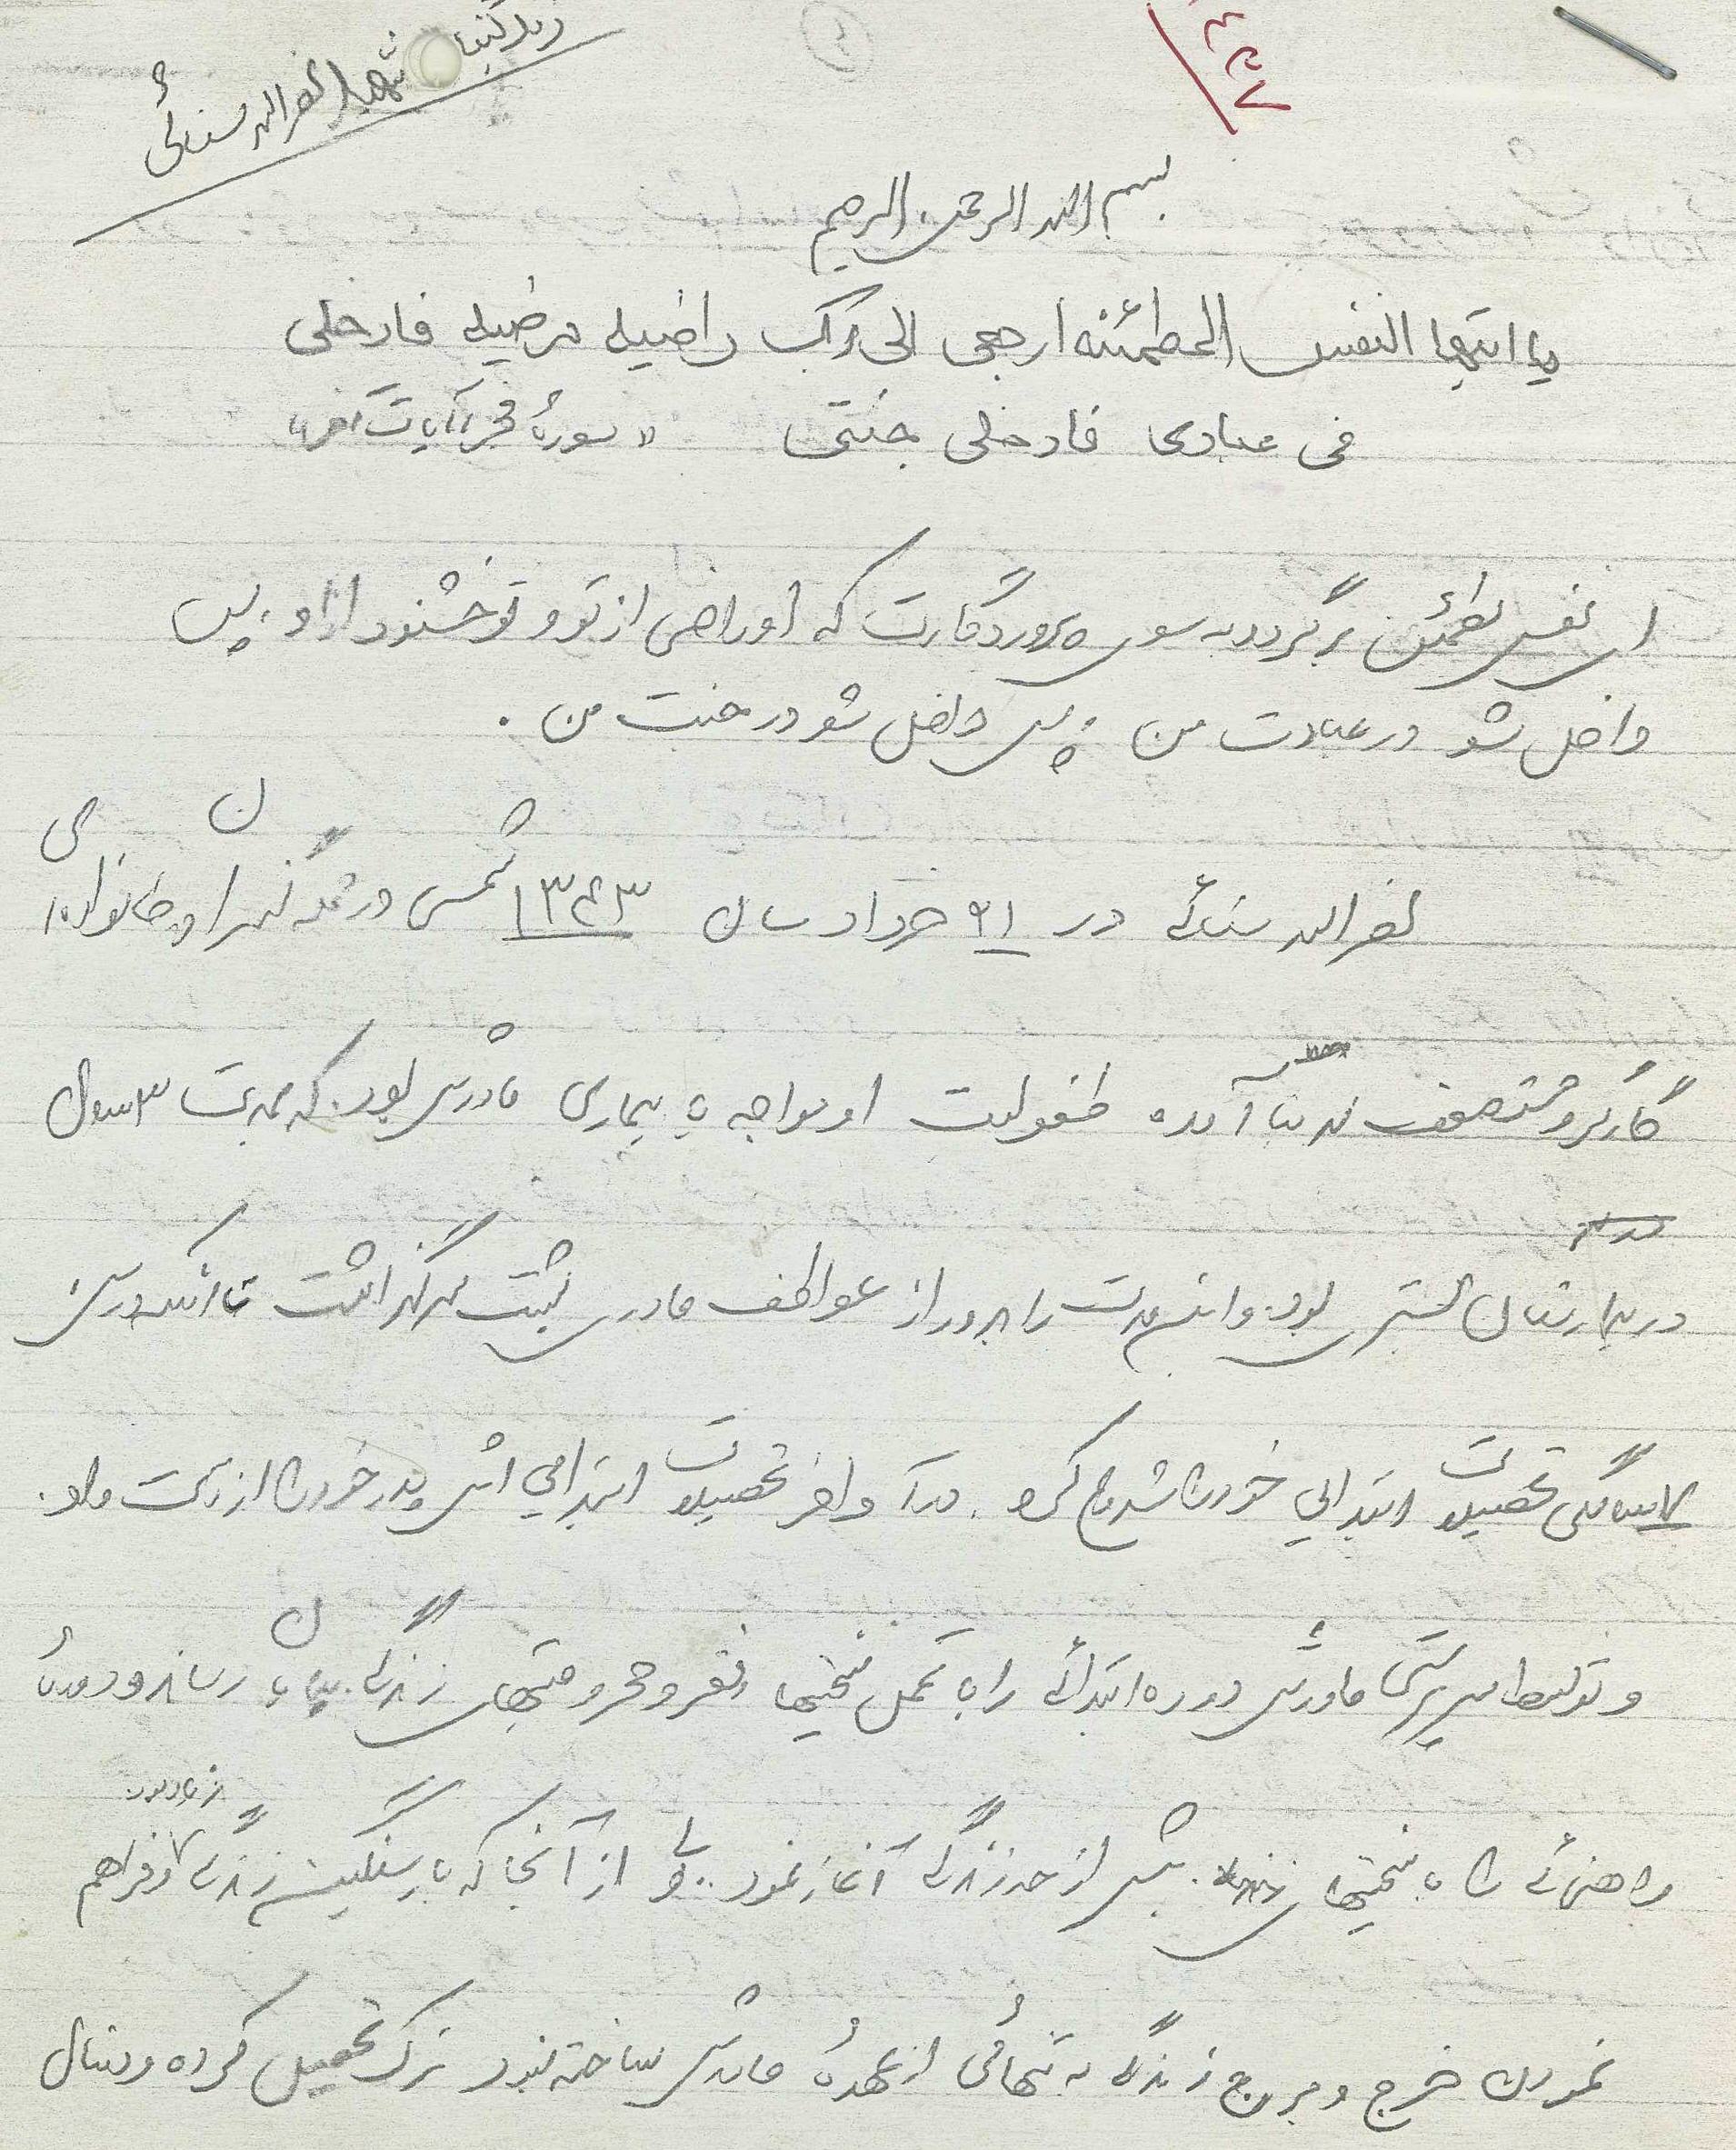 شهید نصرالله سنائی
۴۳۷
بسم الله الرحمن الرحیم
یا ایتها النفس المطمئنه ارجعی الی ربک راضیه مرضیه فادخلی
فی عبادی فادخلی جنتی «سورهٔ فجر آیات آخر»
ای نفس مطمئن برگرد به سوی پروردگارت که او راضی از تو و تو خشنود از او . پس
داخل شو در عبادت من . پس داخل شو در جنت من .
نصرالله سنائی در ۲۱ خرداد سال ۱۳۴۳ شمسی در تهران و خانواده‌ای
کارگر و مستضعف بدنیا آمده طفولیت او مواجه با بیماری مادرش بود که بمدت ۳ سال
در بیمارستان بستری بود و این مدت را بدور از عواطف مادری پشت سر گذاشت تا اینکه در سن
۷ سالگی تحصیلات ابتدایی خود را شروع کرد . در اواخر تحصیلات ابتدایی اش پدر خود را از دست داد .
و توسط سرپرستی مادرش دوره ابتدائی را با تحمل سختیها و فقر و محرومیتهای زندگی بپایان رساند و دورهٔ
راهنمائی را با سختیهای بیش از حد زندگی آغاز نمود .. ولی از آنجا که بار سنگین زندگی زیاد بود و فراهم
نمودن خرج و مرج زندگی به تنهائی از عهدهٔ مادرش ساخته نبود ترک تحصیل کرده و دنبال